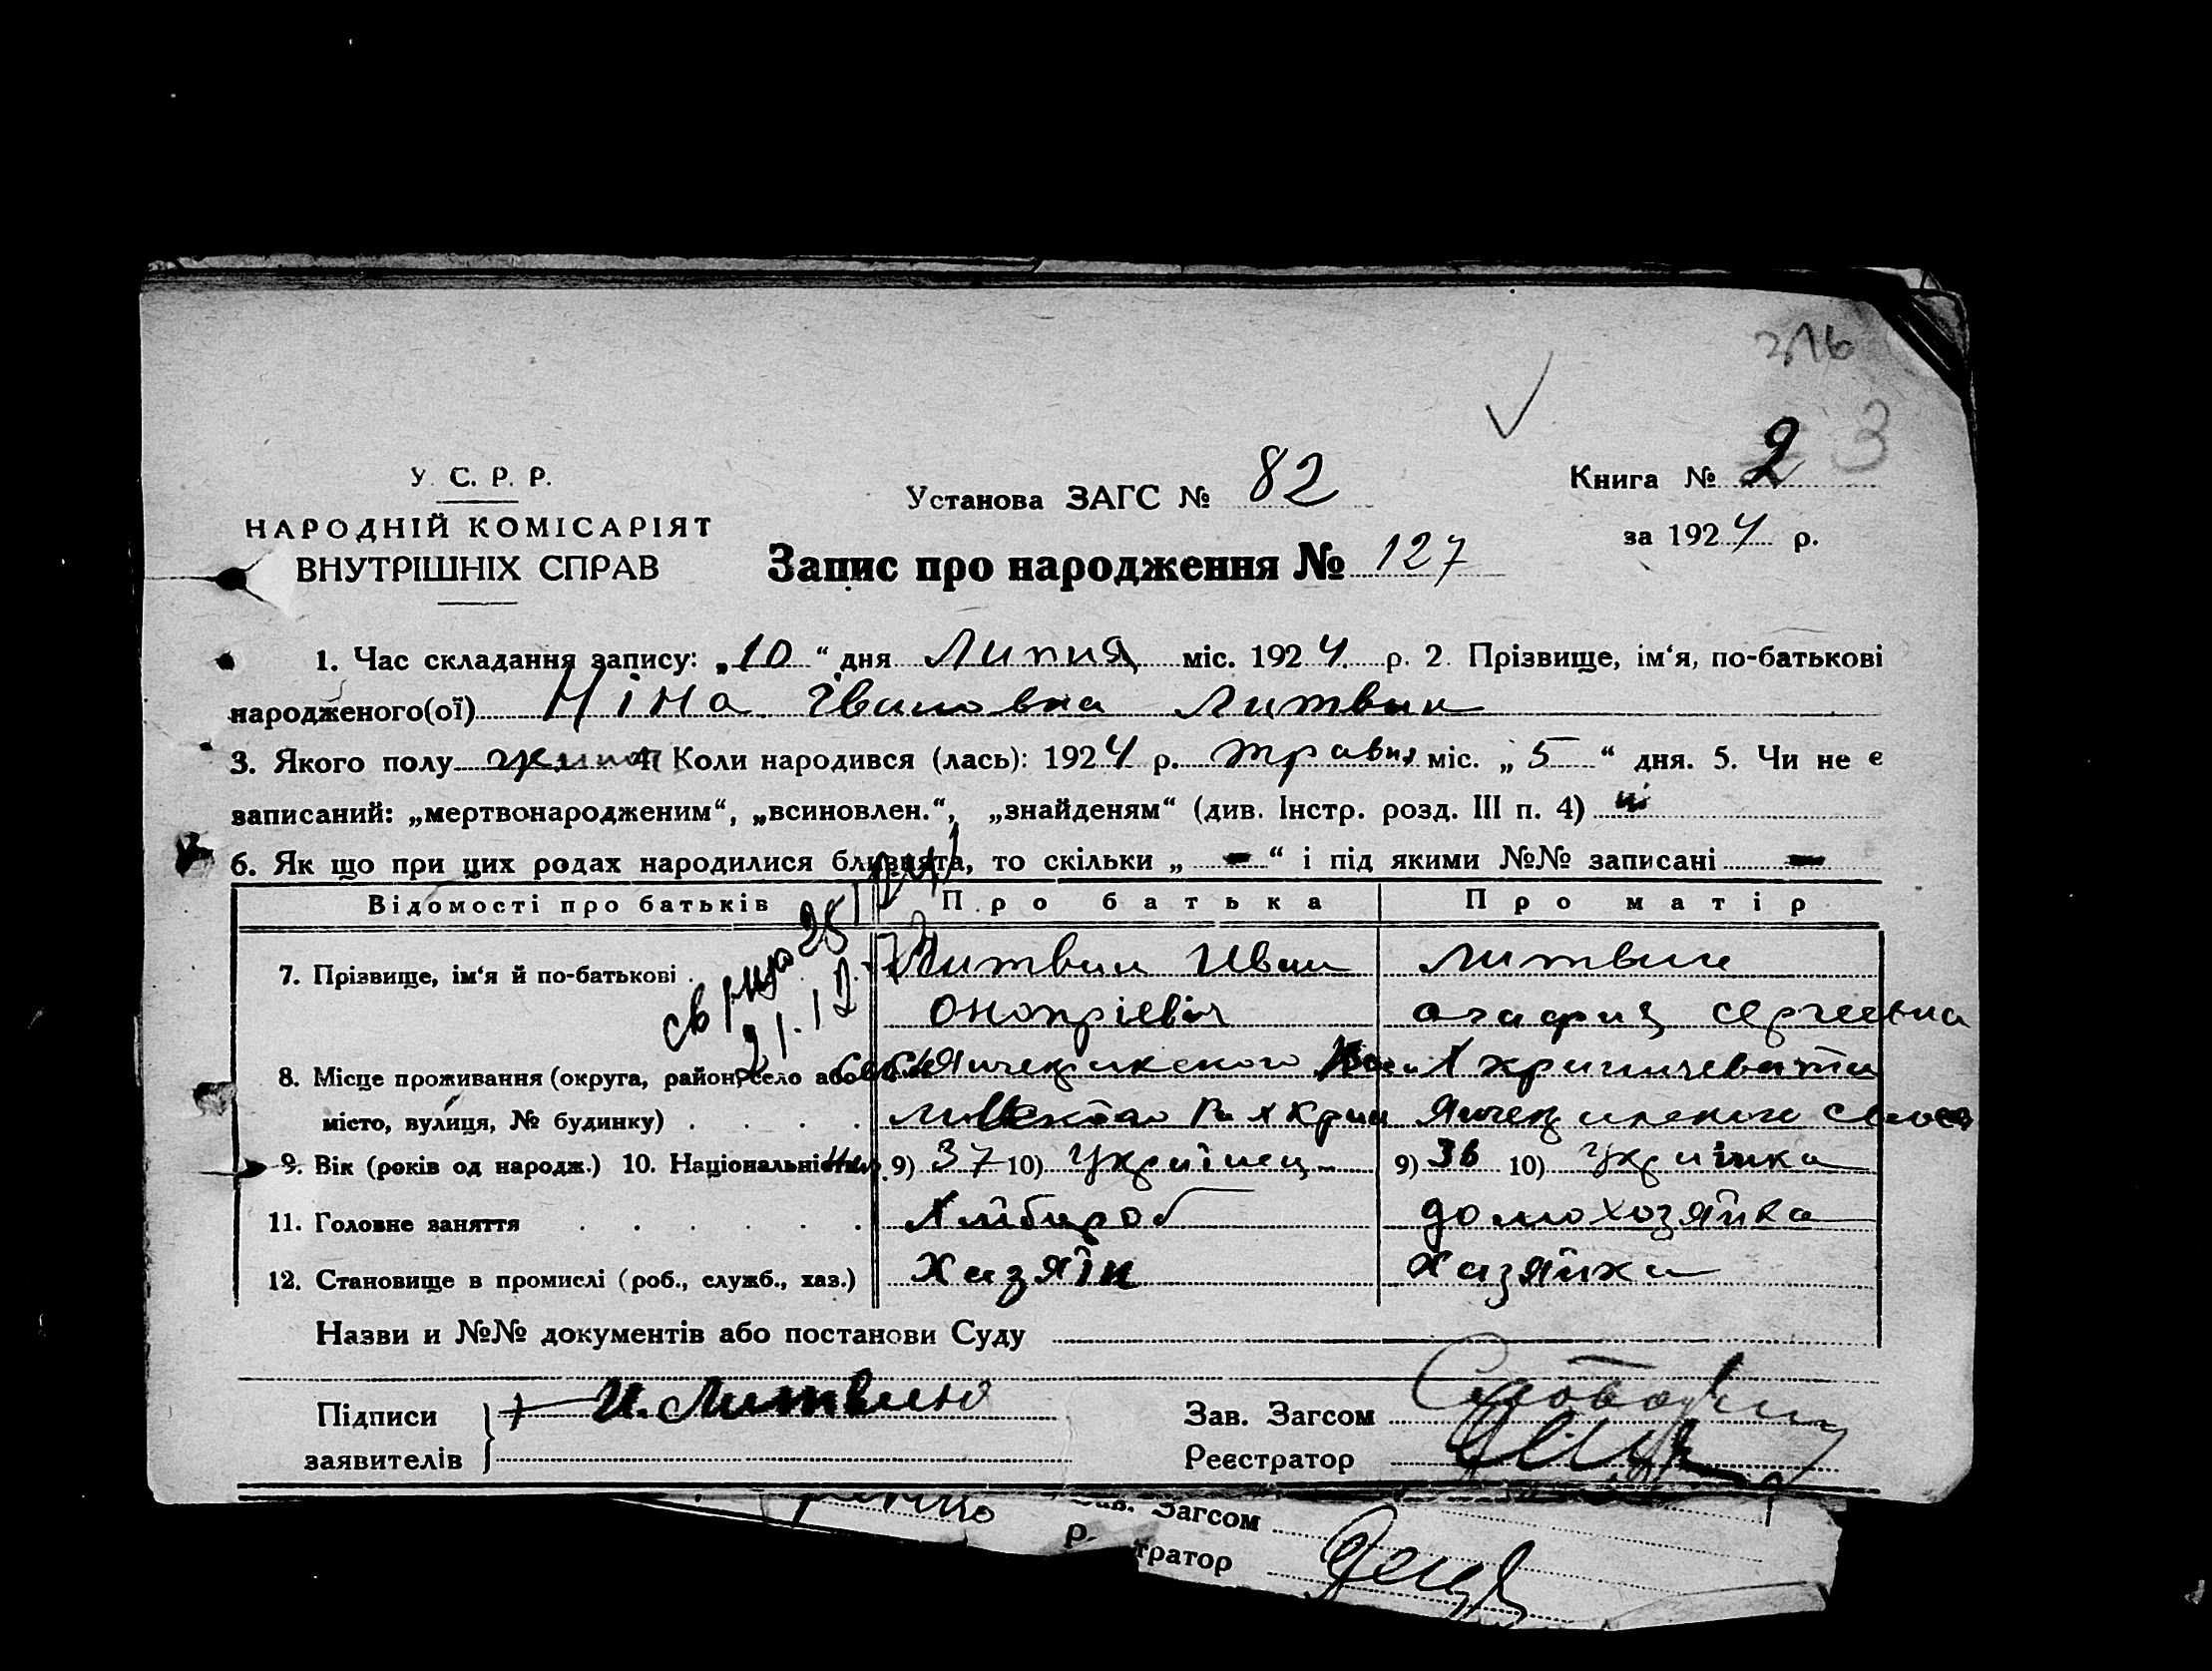 316
3
У. С. Р. Р.
НАРОДНІЙ КОМІСАРІЯТ
ВНУТРІШНІХ СПРАВ
Установа ЗАГС № 82
Книга № 2
за 1924 р.
Запис про народження № 127
1. Час складання запису: „10“ дня Липня міс. 1924 р. 2. Прізвище, ім‘я, по-батькові
народженого(ої) Ніна Івановна Литвин
3. Якого полу 4. Коли народився (лась): 1924 р. травня міс. „5“ дня. 5. Чи не є
записаний: „мертвонародженим“, „всиновлен.“, „знайденям“ (див. Інстр. розд. III п. 4) ні
6. Як що при цих родах народилися близнята, то скільки „ — “ і під якими №№ записані —
Відомості про батьків Про батька Про матір
7. Прізвище, ім‘я й по-батькові . Литвин Иван Литвин
Онопріевіч Агафия Сергеевна
8. Місце проживання (округа, район, село або
місто, вулиця, № будинку) . . . .
9. Вік (років од народж.) 10. Національність 9) 37 10) Українец 9) 36 10) Українка
11. Головне заняття . . . . . . Хлібороб домохозяйка
12. Становище в промислі (роб., служб., хаз.) Хазяїн Хазяйка
Назви и №№ документів або постанови Суду
Підписи И. Литвин Зав. Загсом
заявителів Реєстратор
Зав. Загсом
тратор